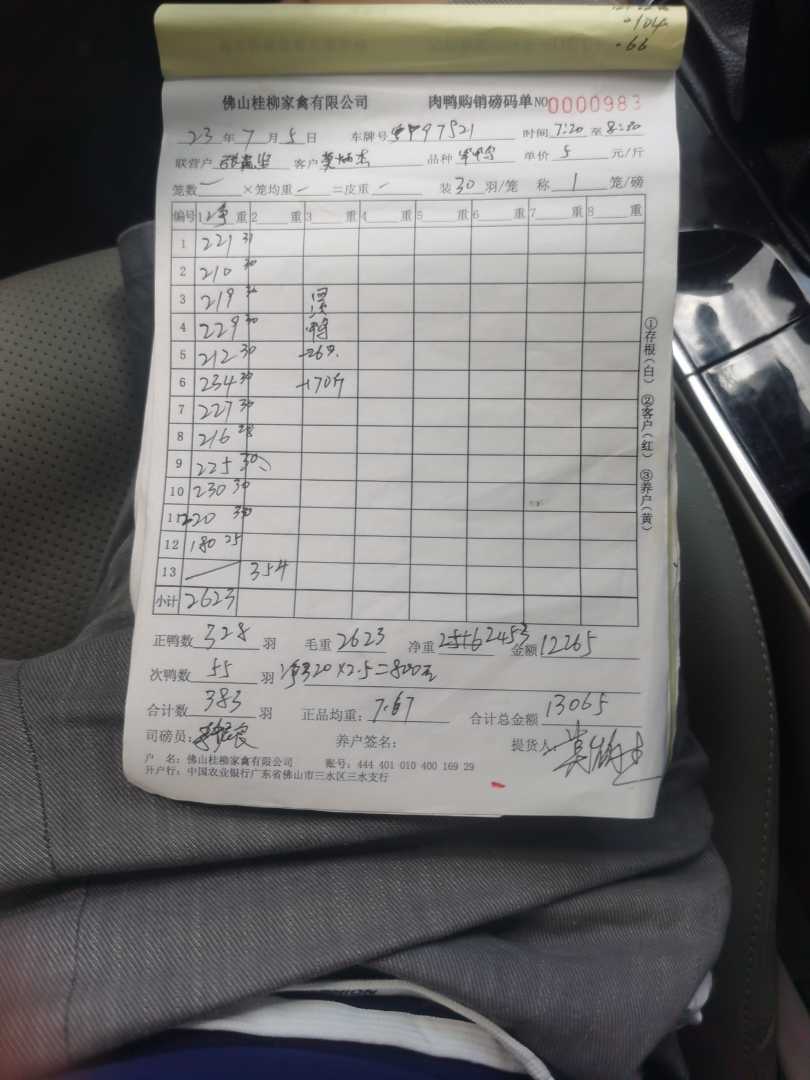 104
.66
佛山桂柳家禽有限公司 肉鸭购销磅码单 NO0000983
23年7月5日 车牌号 97521 时间7:20至8:20
联营户 客户 品种 单价5元/斤
笼数一×笼均重一=皮重一 装30羽/笼 称1笼/磅
编号 1 净重 2 重 3 重 4 重 5 重 6 重 7 重 8 重
1 221 31
2 210 30
3 219 30
4 229 30 鸭
5 212 30 -26只
6 234 30 -170斤
7 227 30
8 216 28
9 225 30
10 230 30
11 220 30
12 180 25
13 354
小计 2623
①存根(白) ②客户(红) ③养户(黄)
正鸭数328羽 毛重2623 净重2453 金额12265
次鸭数55羽 净320×2.5=800元
合计数383羽 正品均重:7.67 合计总金额13065
司磅员: 养户签名: 提货人:
户 名:佛山桂柳家禽有限公司 账号:444 401 010 400 169 29
开户行:中国农业银行广东省佛山市三水区三水支行